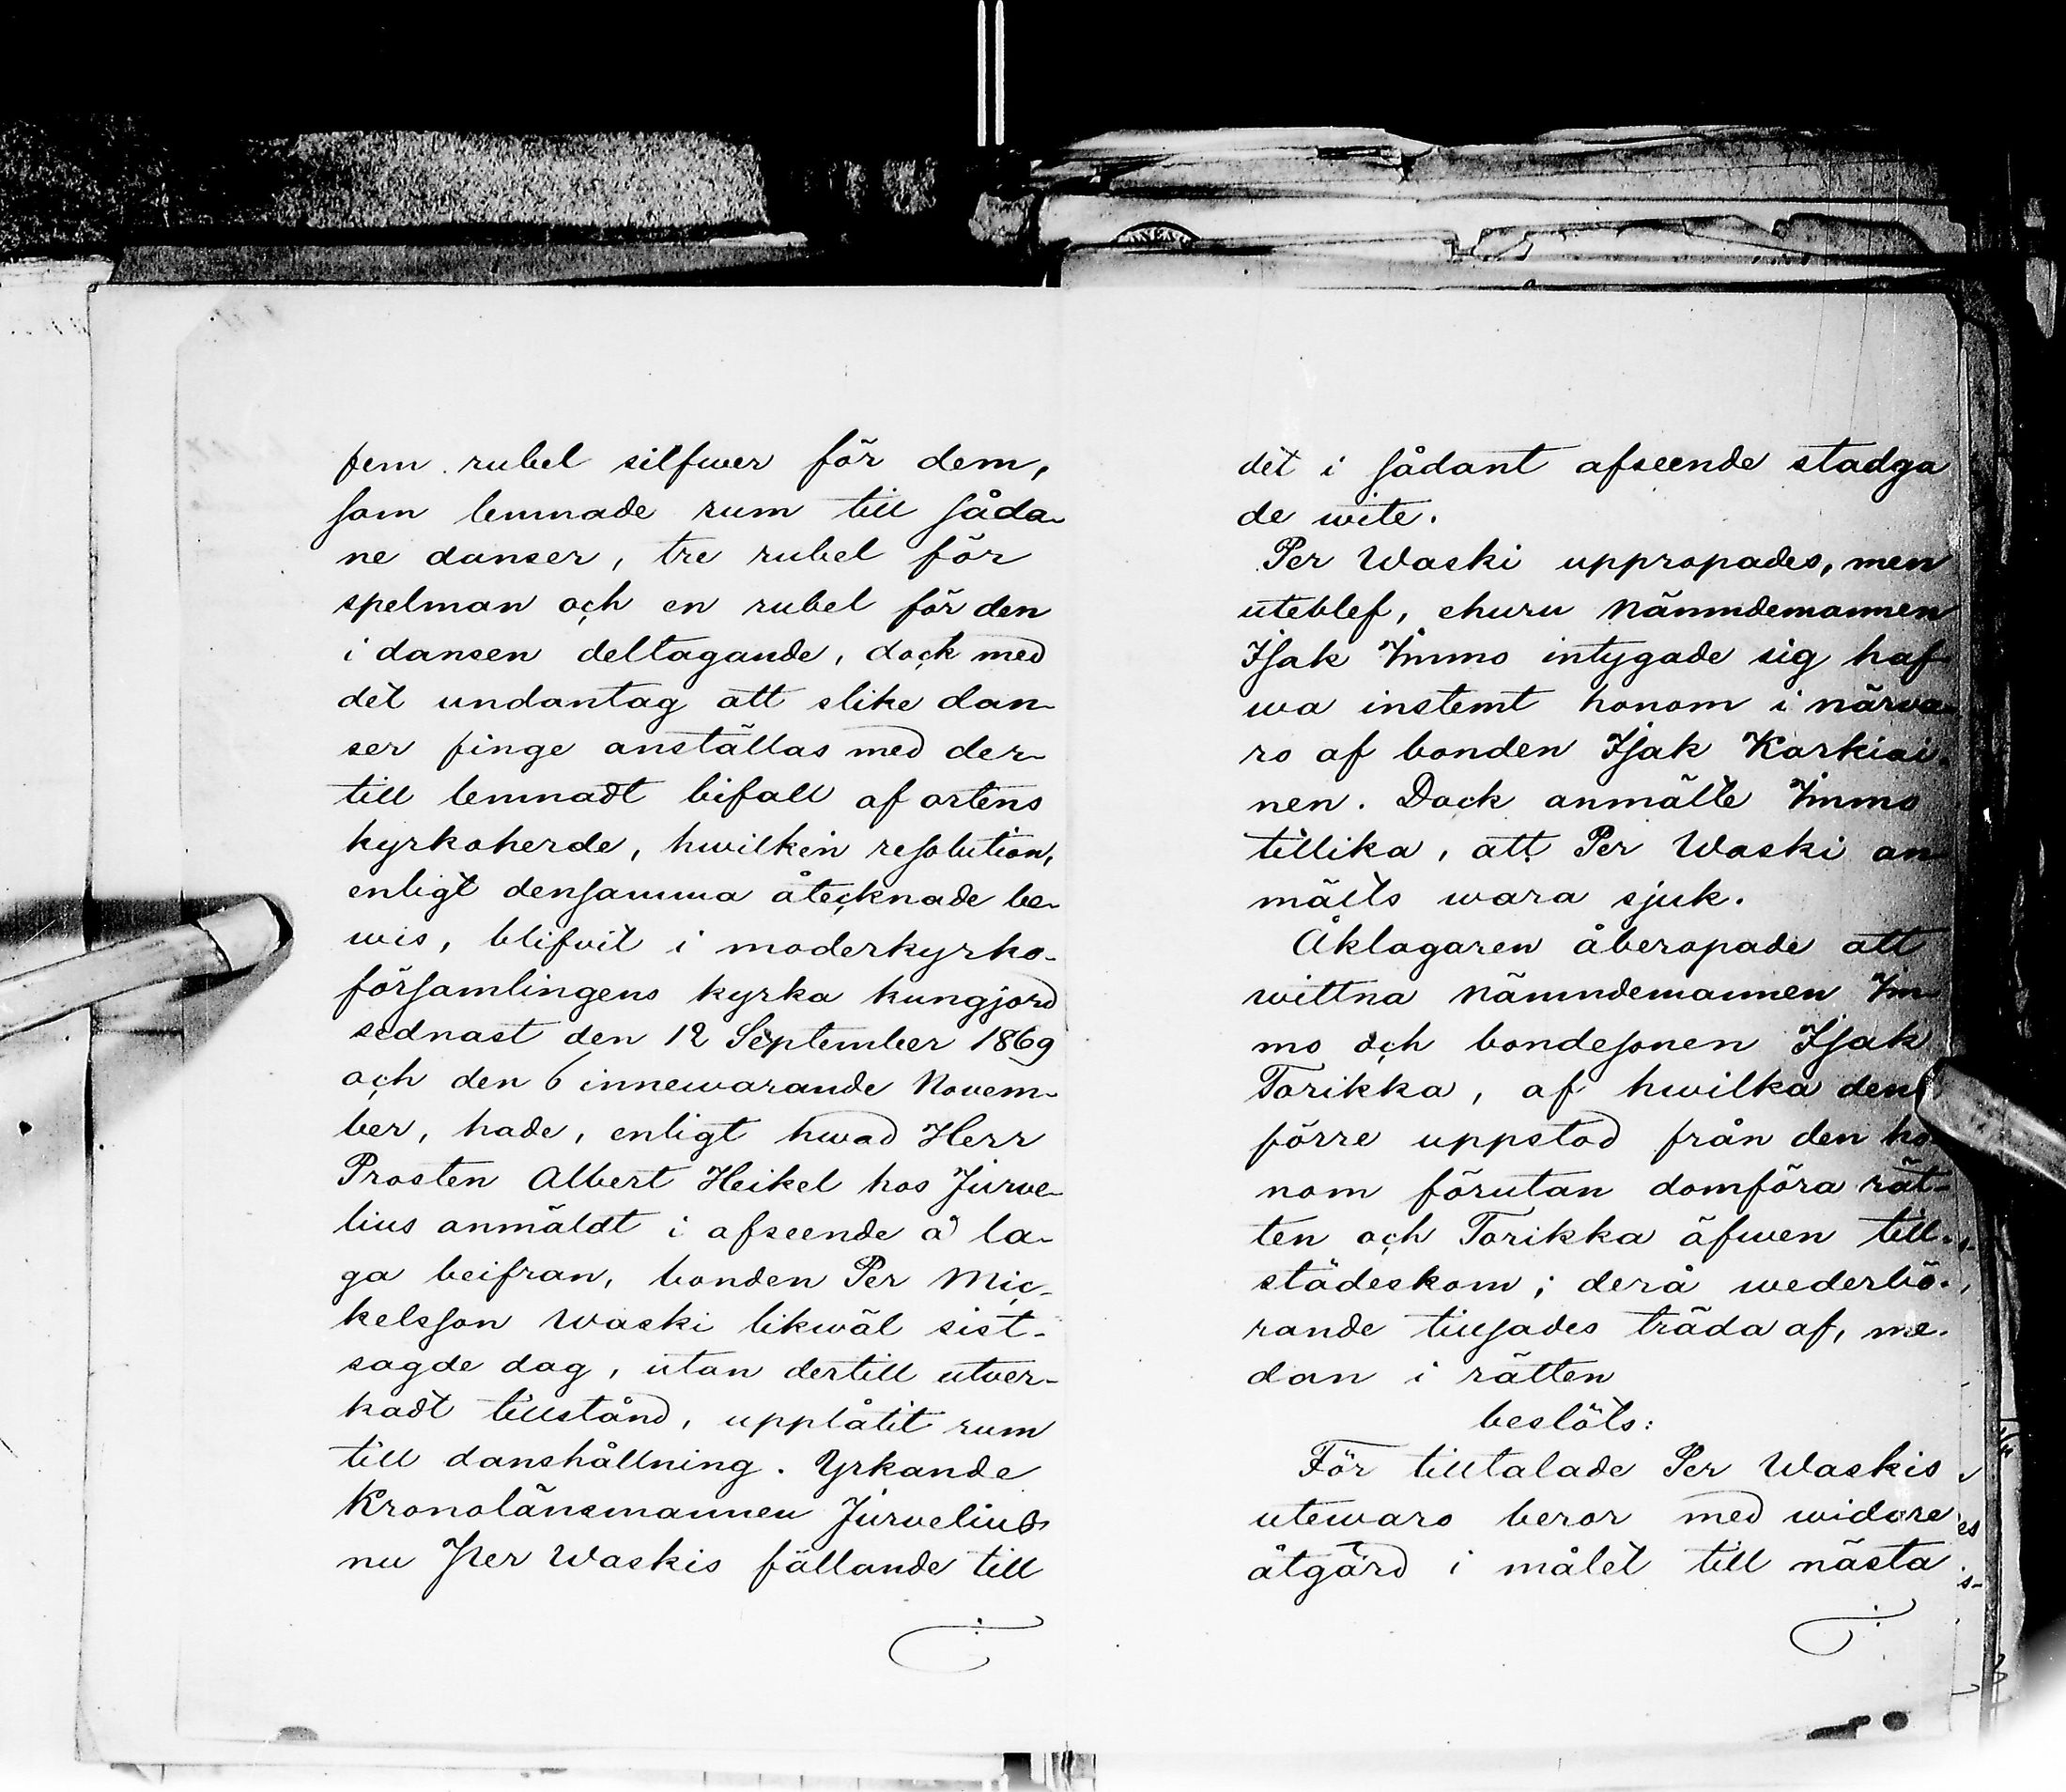 fem rubel silfwer för dem,
som lemnade rum till såda-
ne danser, tre rubel för
spelman och en rubel för den
i dansen deltagande, dock med
det undantag att slike dan-
ser finge anställas med der-
till lemnadt bifall af ortens
kyrkoherde, hwilken resolution,
enligt densamma åtecknade be-
wis, blifvit i moderkyrko-
församlingens kyrka kungjord
sednast den 12 September 1869
och den 6 innewarande Novem-
ber, hade, enligt hwad Herr
Prosten Albert Heikel hos Jurve-
lius anmäldt i afseende å la-
ga beifran, bonden Per Mic-
kelsson Waski likwäl sist-
sagde dag, utan dertill utver-
kadt tillstånd, upplåtit rum
till danshållning. Yrkande
Kronolänsmannen Jurvelius
nu Per Waskis fällande till
det i sådant afseende stadga
de wite.
Per Waski uppropades, men
uteblef, ehuru Nämndemannen
Isak Immo intygade sig haf-
wa instemt honom i närwa-
ro af bonden Isak Karkiai-
nen. Dock anmälte Immo
tillika, att Per Waski an-
mälts wara sjuk.
Åklagaren åberopade att
wittna Nämndemannen Im-
mo och bondesonen Isak
Torikka, af hwilka den
förre uppstod från den ho-
nom förutan domföra rät-
ten och Torikka äfwen till-
städeskom; derå wederbö-
rande tillsades träda af, me-
dan i rätten
beslöts:
För tilltalade Per Waskis
utewaro beror med widare
åtgärd i målet till nästa